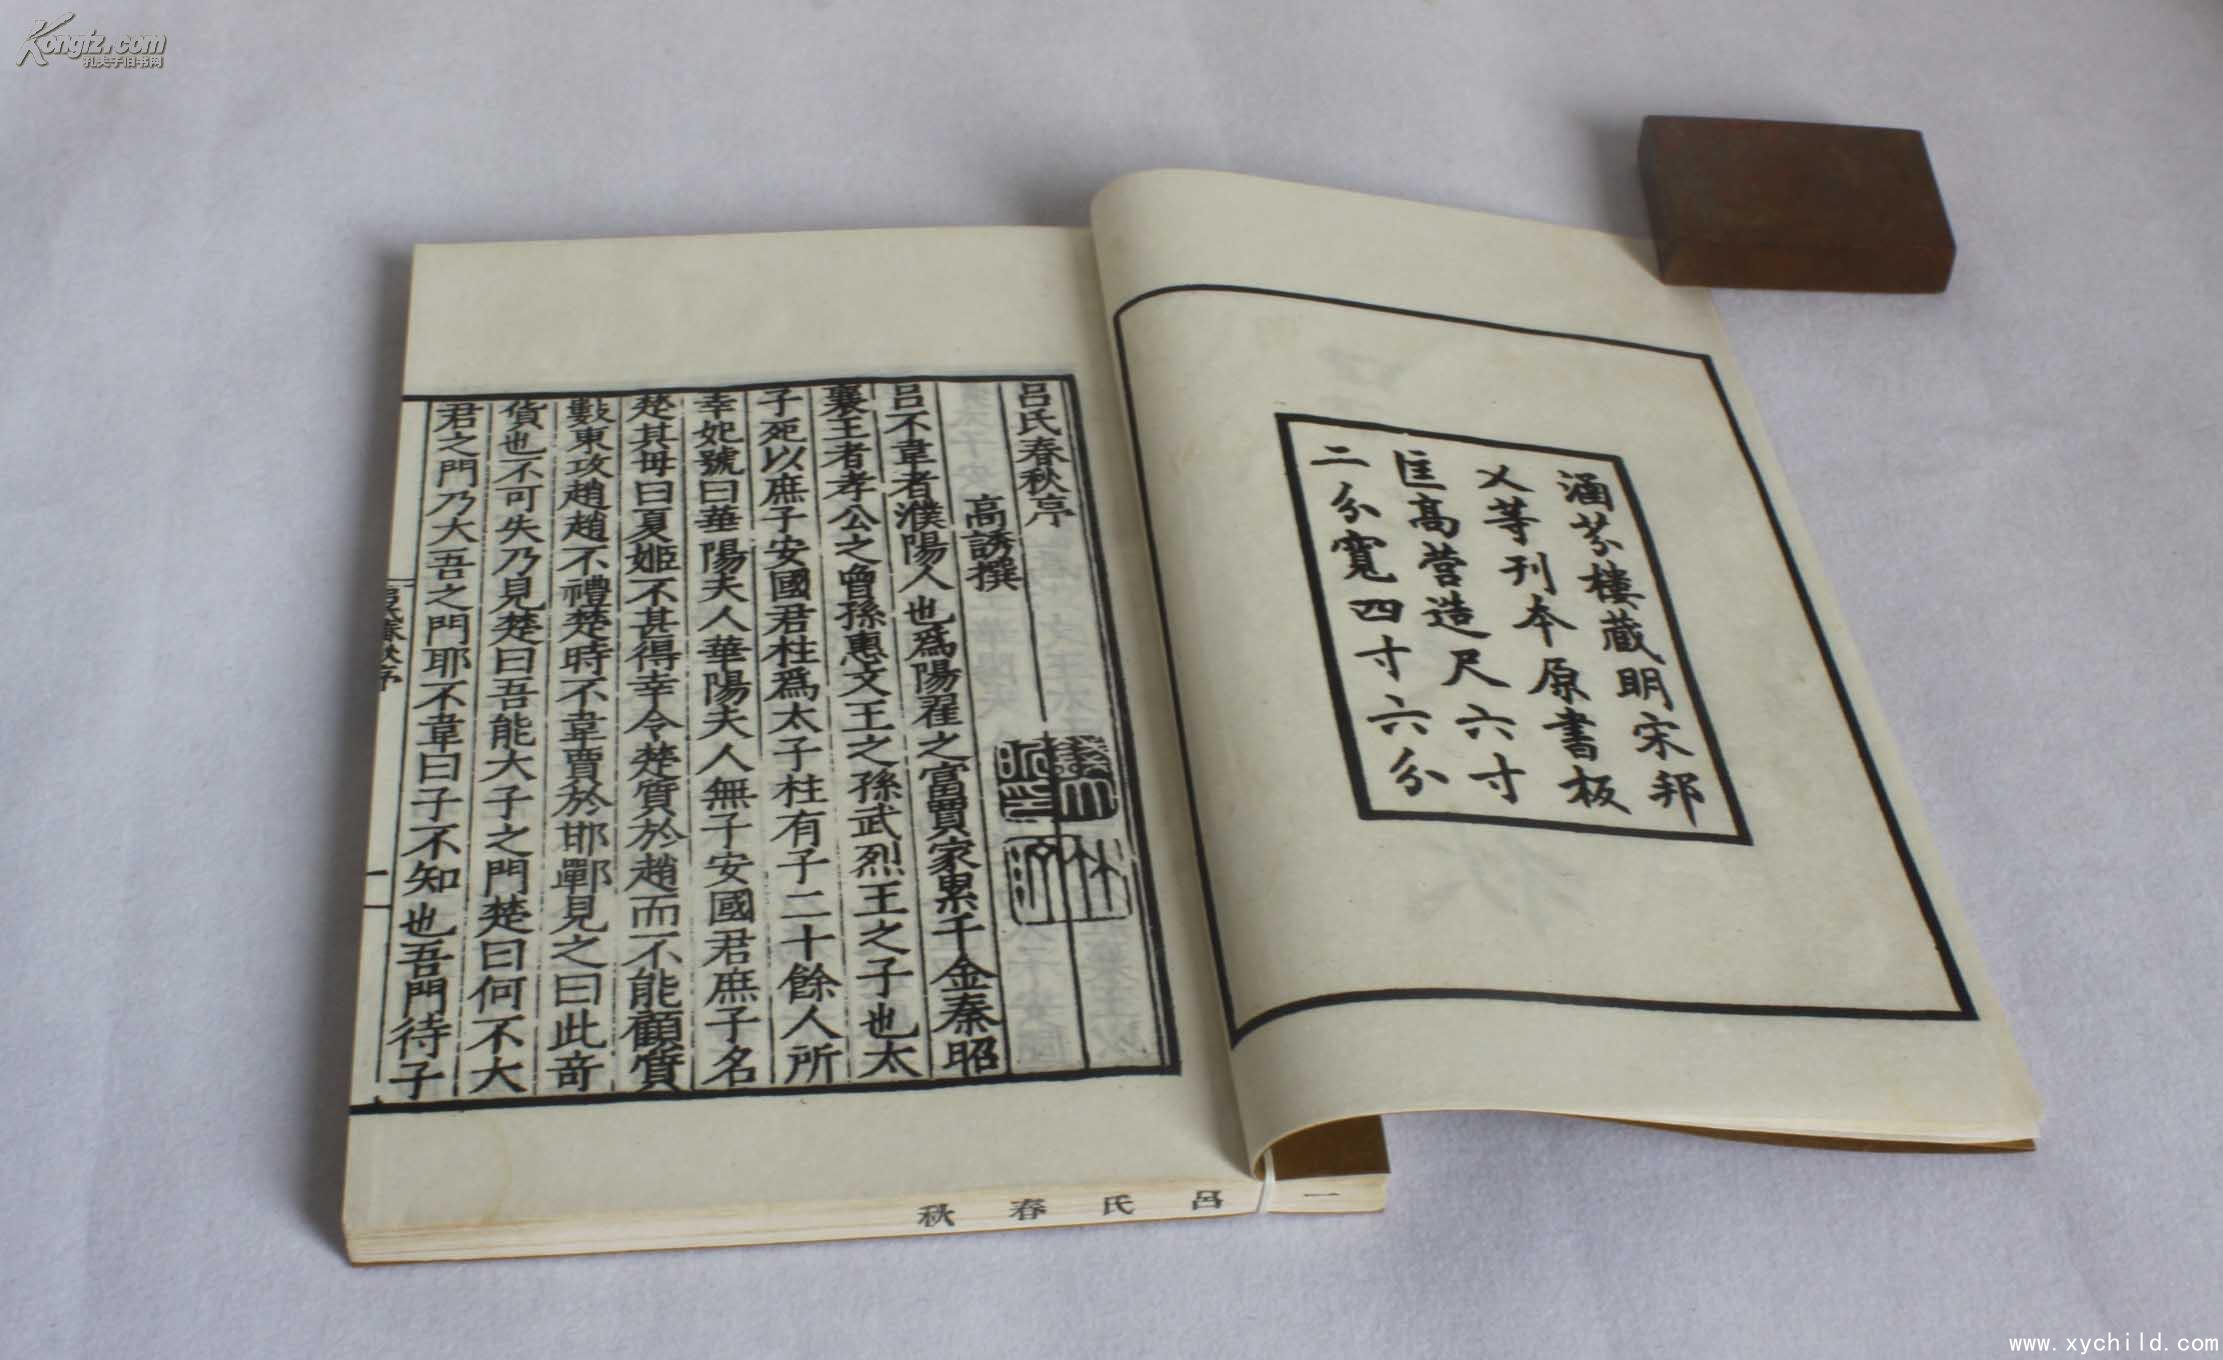 Kongfz.com
孔夫子旧书网
涵芬樓藏明宋邦
乂等刊本原書板
匡髙營造尺六寸
二分寬四寸六分
呂氏春秋序
高誘撰
呂不韋者濮陽人也爲陽翟之富賈家累千金秦昭
襄王者孝公之曾孫惠文王之孫武烈王之子也太
子死以庶子安國君柱爲太子柱有子二十餘人所
幸妃號曰華陽夫人華陽夫人無子安國君庶子名
楚其母曰夏姬不甚得幸令楚質於趙而不能顧質
數東攻趙趙不禮楚時不韋賈於邯鄲見之曰此奇
貨也不可失乃見楚曰吾能大子之門楚曰何不大
君之門乃大吾之門耶不韋曰子不知也吾門待子
呂氏春秋序
一
一 呂氏春秋
www.xychild.com